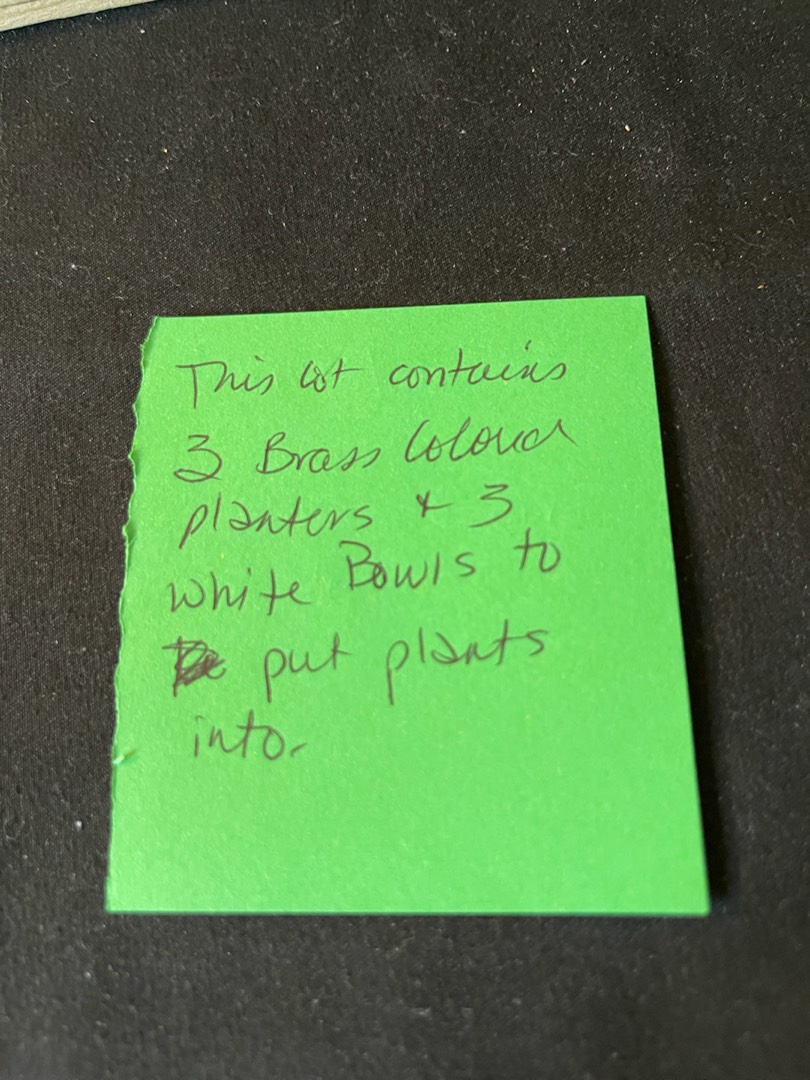 This lot contains
3 Brass Colour
planters + 3
white Bowls to
put plants
into.